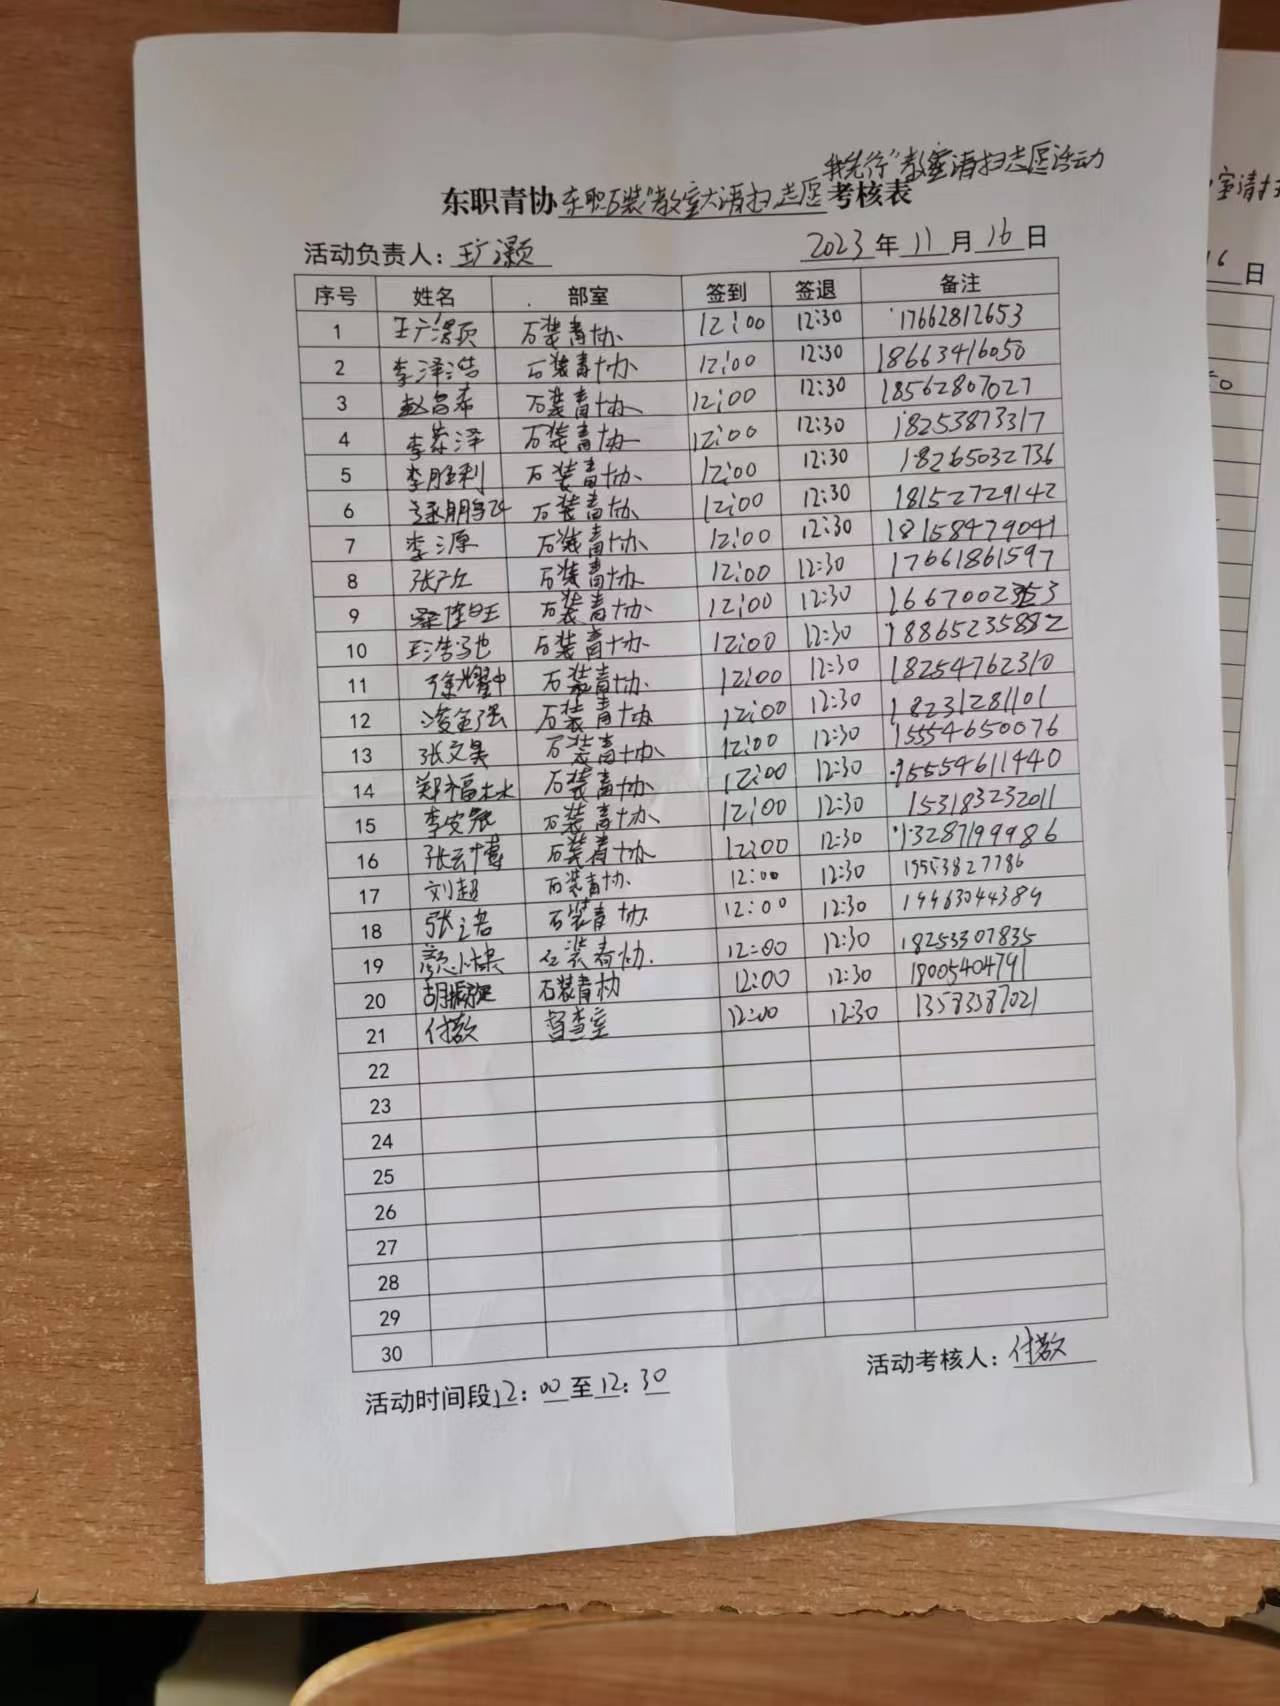 我先行"教室清扫志愿活动
东职青协东职石装"教室大清扫,志愿考核表
活动负责人：王广灏 2023年11月16日
序号 姓名 部室 签到 签退 备注
1 王广灏 石装青协 12:00 12:30 17662812653
2 李泽浩 石装青协 12:00 12:30 18663416050
3 赵启希 石装青协 12:00 12:30 18562807027
4 李泰泽 石装青协 12:00 12:30 18253873317
5 李胜利 石装青协 12:00 12:30 18265032736
6 石装青协 12:00 12:30 18152729142
7 李源 石装青协 12:00 12:30 18158479041
8 石装青协 12:00 12:30 17661861597
9 石装青协 12:00 12:30
10 王浩池 石装青协 12:00 12:30 18865235882
11 徐耀中 石装青协 12:00 12:30 18254762310
12 石装青协 12:00 12:30 18231281101
13 张文昊 石装青协 12:00 12:30 15554650076
14 郑福林 石装青协 12:00 12:30 15554611440
15 石装青协 12:00 12:30 153183232011
16 张云博 石装青协 12:00 12:30 13287199986
17 刘超 石装青协 12:00 12:30 19553827786
18 石装青协 12:00 12:30 19963044389
19 石装青协 12:00 12:30 18253307835
20 石装青协 12:00 12:30 18005404791
21 付歆 督查室 12:00 12:30 13583387021
22
23
24
25
26
27
28
29
30
活动时间段12：00至12：30 活动考核人：付歆
室清扫
16日